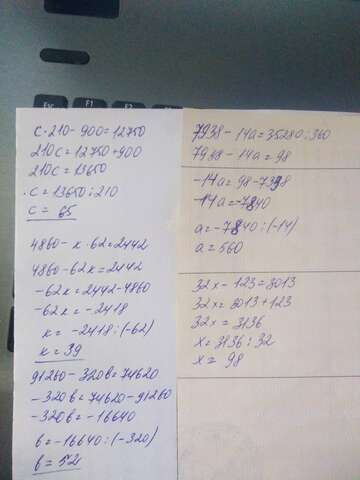 Esc
F1
F2
F3
c·210 - 900 = 12750
210c = 12750 + 900
210c = 13650
c = 13650 : 210
c = 65
4860 - k·62 = 2442
4860 - 62k = 2442
-62k = 2442 - 4860
-62k = -2418
k = -2418 : (-62)
k = 39
91260 - 320b = 74620
-320b = 74620 - 91260
-320b = -16640
b = -16640 : (-320)
b = 52
7938 - 14a = 35280 : 360
7938 - 14a = 98
-14a = 98 - 7398
-14a = -7840
a = -7840 : (-14)
a = 560
32x - 123 = 3013
32x = 3013 + 123
32x = 3136
x = 3136 : 32
x = 98